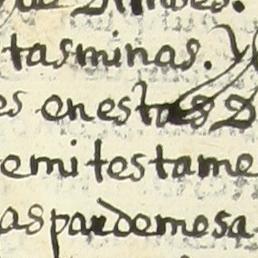 tas minas. y
es en estas D
e mi testame
as par demosa